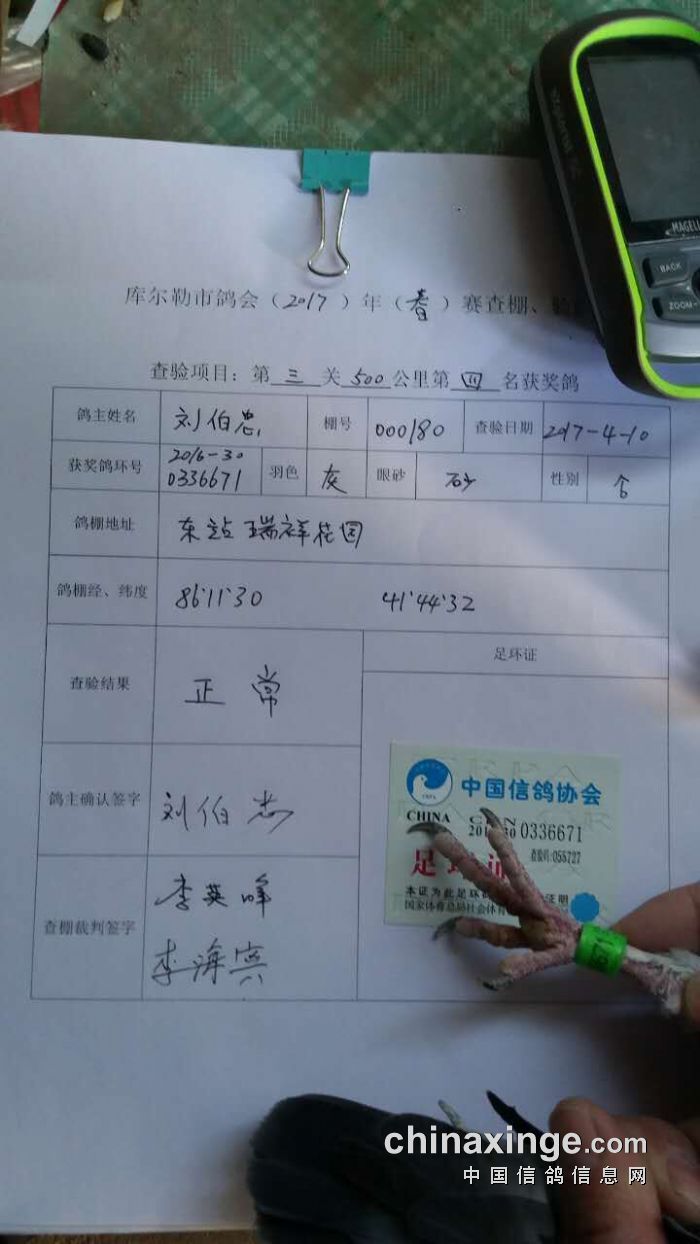 MAGELL
BACK
ZOOM-
库尔勒市鸽会（2017）年（春）赛查棚、验
查验项目：第三关500公里第四名获奖鸽
鸽主姓名 刘伯忠 棚号 000180 查验日期 2017-4-10
获奖鸽环号 2016-30 0336671 羽色 灰 眼砂 砂 性别
鸽棚地址 东站瑞祥花园
鸽棚经、纬度 86°11'30 41°44'32
查验结果 正常
足环证
鸽主确认签字 刘伯忠
查棚裁判签字 李英峰
李海宾
中国信鸽协会
CHINA
0336671
查验码:055727
足环证
本证为此足环 证明
国家体育总局社会体育
chinaxinge.com
中国信鸽信息网